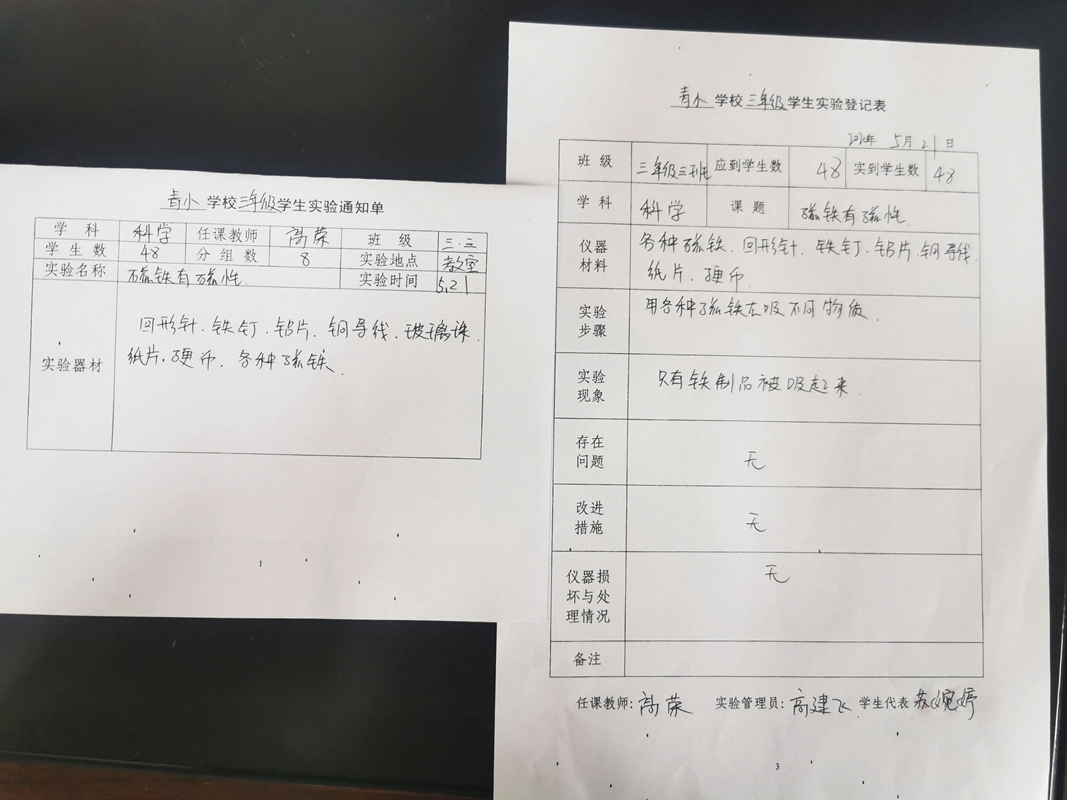 青小 学校 三年级 学生实验通知单
学科 科学 任课教师 高荣 班级 三.三
学生数 48 分组数 8 实验地点 教室
实验名称 磁铁有磁性. 实验时间 5.21
实验器材
回形针.铁钉.铝片.铜导线.玻璃珠.
纸片.硬币.各种磁铁.
1
青小 学校 三年级 学生实验登记表
2020年 5月21日
班级 三年级三班 应到学生数 48 实到学生数 48
学科 科学 课题 磁铁有磁性.
仪器
材料
各种磁铁.回形针.铁钉.铝片.铜导线.
纸片.硬币.
实验
步骤
用各种磁铁去吸不同物质.
实验
现象
只有铁制品被吸起来.
存在
问题
无
改进
措施
无
仪器损
坏与处
理情况
无
备注
任课教师:高荣 实验管理员:高建飞 学生代表 苏婉婷
3